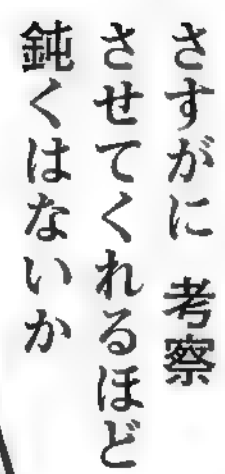 さすがに 考察
させてくれるほど
鈍くはないか